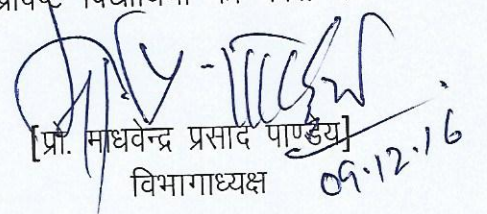 [प्रो. माधवेन्द्र प्रसाद पाण्डेय]
विभागाध्यक्ष 09.12.16